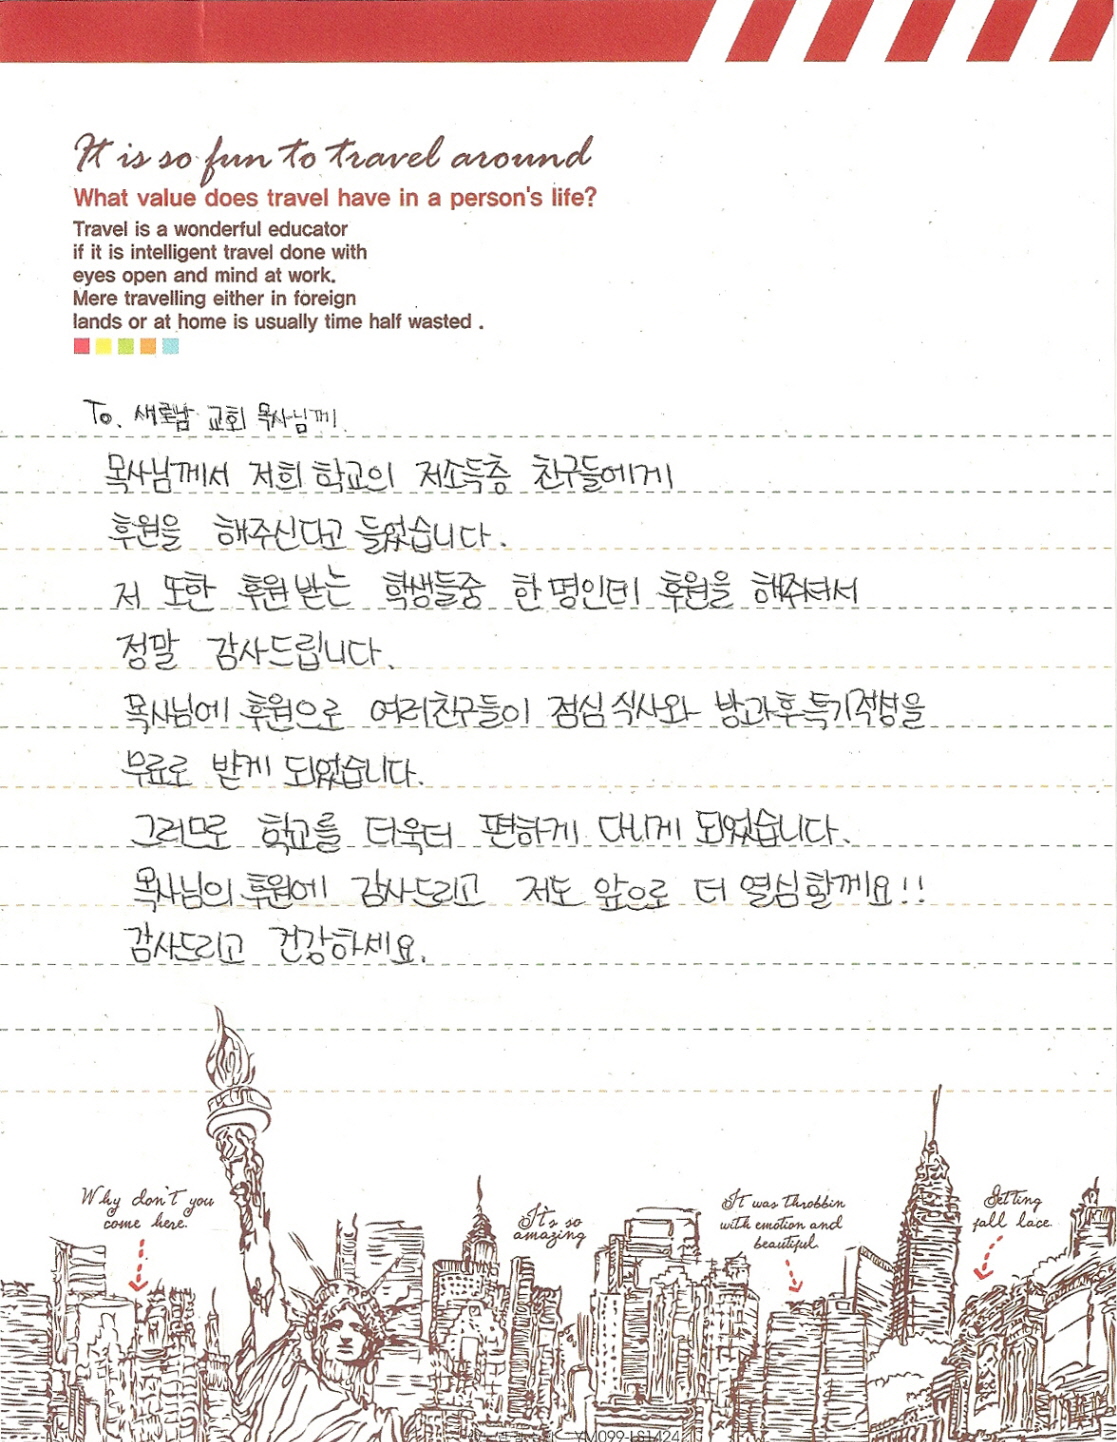 It is so fun to travel around
What value does travel have in a person's life?
Travel is a wonderful educator
if it is intelligent travel done with
eyes open and mind at work.
Mere travelling either in foreign
lands or at home is usually time half wasted .
To. 새로남 교회 목사님께.
목사님께서 저희 학교의 저소득층 친구들에게
후원을 해주신다고 들었습니다.
저 또한 후원 받는 학생들중 한 명인데 후원을 해주셔서
정말 감사드립니다.
목사님에 후원으로 여러친구들이 점심 식사와 방과후특기적성을
무료로 받게 되었습니다.
그러므로 학교를 더욱더 편하게 다니게 되었습니다.
목사님의 후원에 감사드리고 저도 앞으로 더 열심할께요!!
감사드리고 건강하세요.
Why don't you
come here.
It's so
amazing
It was throbbin
with emotion and
beautiful
Getting
fall lace
YM099-LS1424